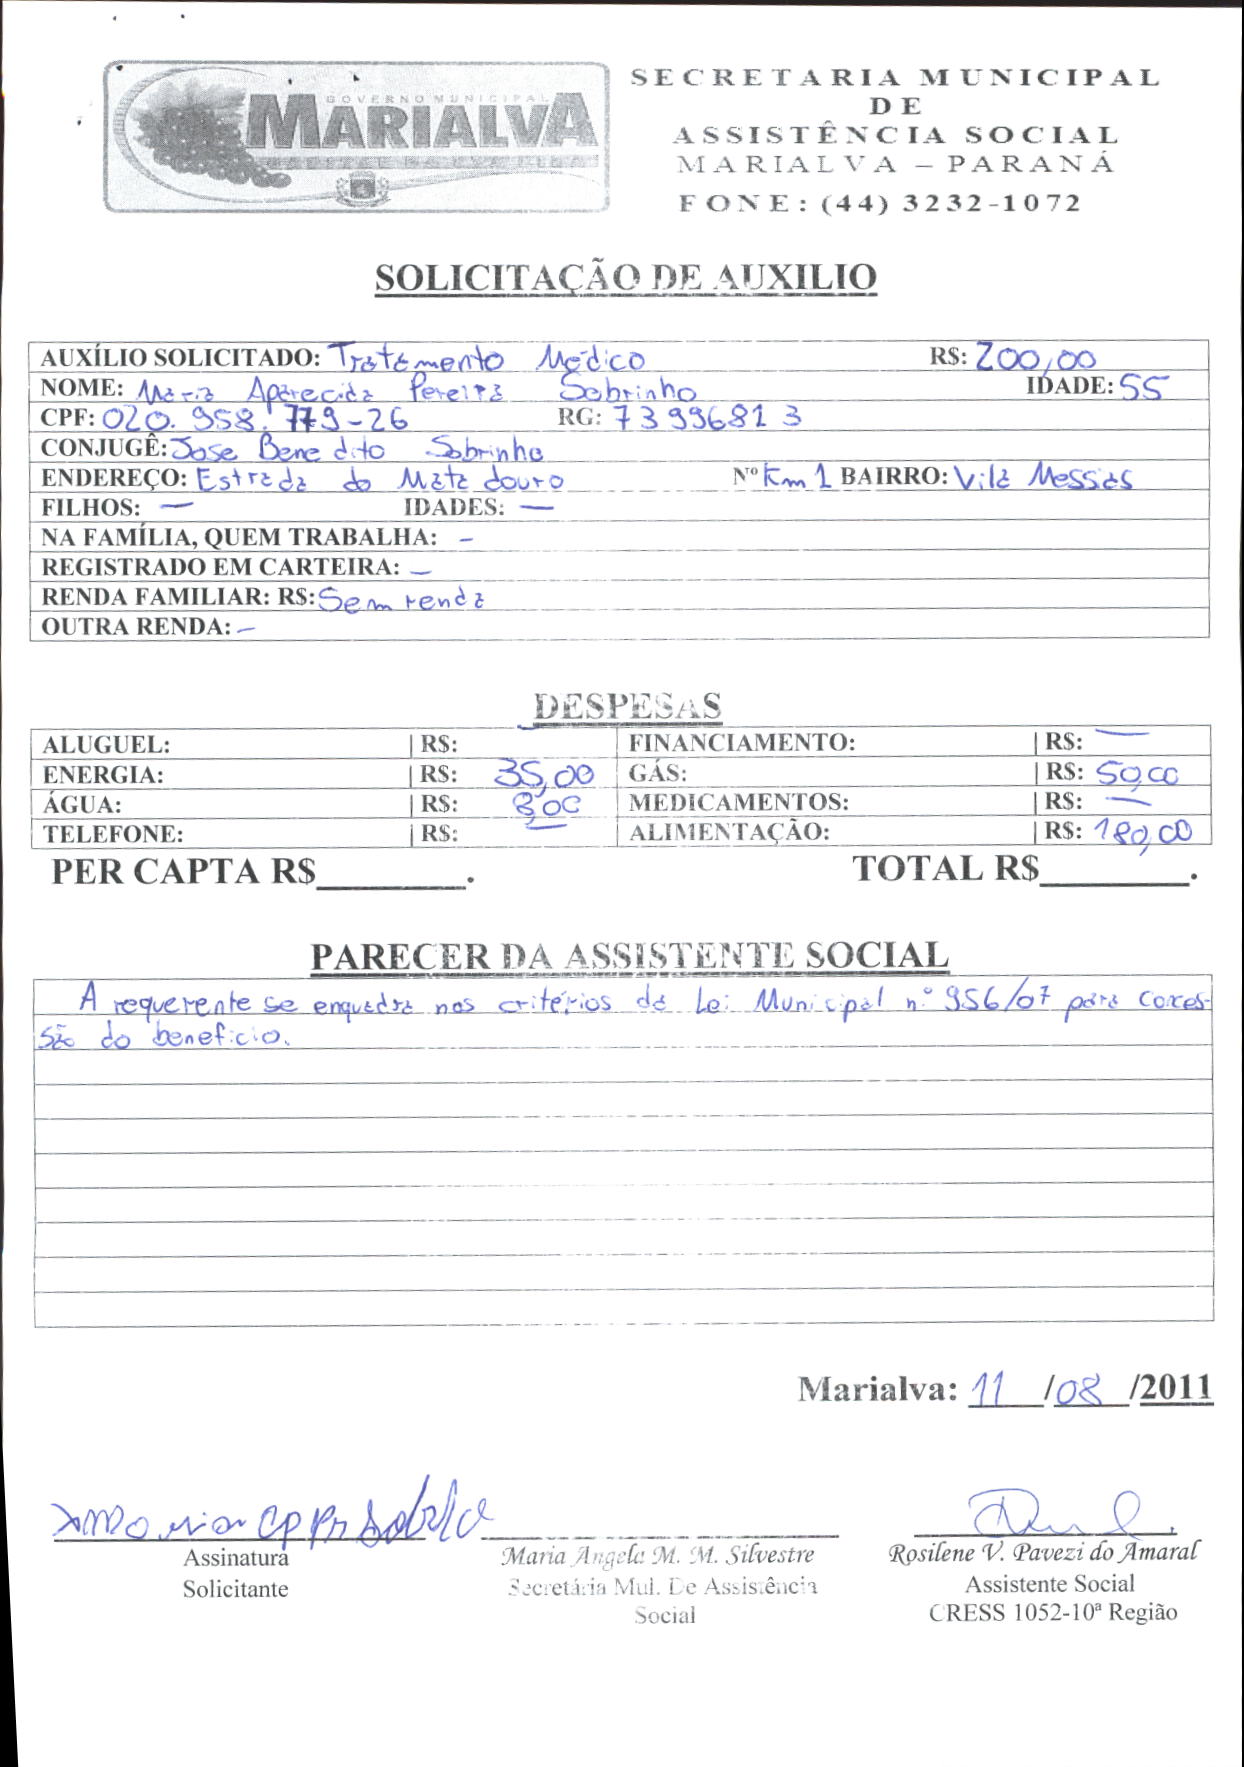 GOVERNO MUNICIPAL
MARIALVA
SECRETARIA MUNICIPAL
DE
ASSISTÊNCIA SOCIAL
MARIALVA – PARANÁ
FONE: (44) 3232-1072
SOLICITAÇÃO DE AUXILIO
AUXÍLIO SOLICITADO: Tratamento Médico R$: 200,00
NOME: Maria Aparecida Pereira Sobrinho IDADE: 55
CPF: 020.958.779-26 RG: 7399681 3
CONJUGÊ: Jose Benedito Sobrinho
ENDEREÇO: Estrada do Matadouro Nº Km 1 BAIRRO: Vila Messias
FILHOS: — IDADES: —
NA FAMÍLIA, QUEM TRABALHA: -
REGISTRADO EM CARTEIRA: -
RENDA FAMILIAR: R$: Sem renda
OUTRA RENDA: -
DESPESAS
ALUGUEL: | R$: FINANCIAMENTO: | R$: —
ENERGIA: | R$: 35,00 GÁS: | R$: 50,00
ÁGUA: | R$: 8,00 MEDICAMENTOS: | R$: —
TELEFONE: | R$: — ALIMENTAÇÃO: | R$: 180,00
PER CAPTA R$________. TOTAL R$________.
PARECER DA ASSISTENTE SOCIAL
A requerente se enquadra nos critérios da Lei Municipal n° 956/07 para conces-
são do beneficio.
Marialva: 11 /08 /2011
Assinatura
Solicitante
Maria Angela M. M. Silvestre
Secretária Mul. De Assistência
Social
Rosilene V. Pavezi do Amaral
Assistente Social
CRESS 1052-10ª Região